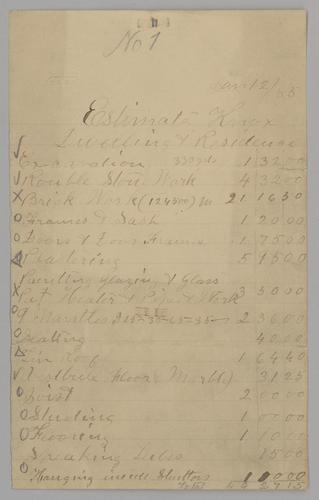 No 1
Jan 12/85
Estimate Knox
Dwelling & Residence
√ Excavation 330 yds 1 32.00
√ Rouble Stone Work 4 32 00
X Brick Work (124500) M 21 16 50
O Frames & Sash 1 20 00
O Doors & Door Frames 1 75 00
Plastering 5 95 00
Painting Glazing & Glass
X Heater & Work 3 50 00
O 9 Mantles 2 36 00
O 40 00
Tin Roof 1 64 40
√ Vestibule Floor (Marble) 31 25
O Joist 2 00 00
O Studing 1 00 00
O Flooring 1 10 00
Speaking Tubes 15 00
O Hanging inside Shutters 1 00 00
Total